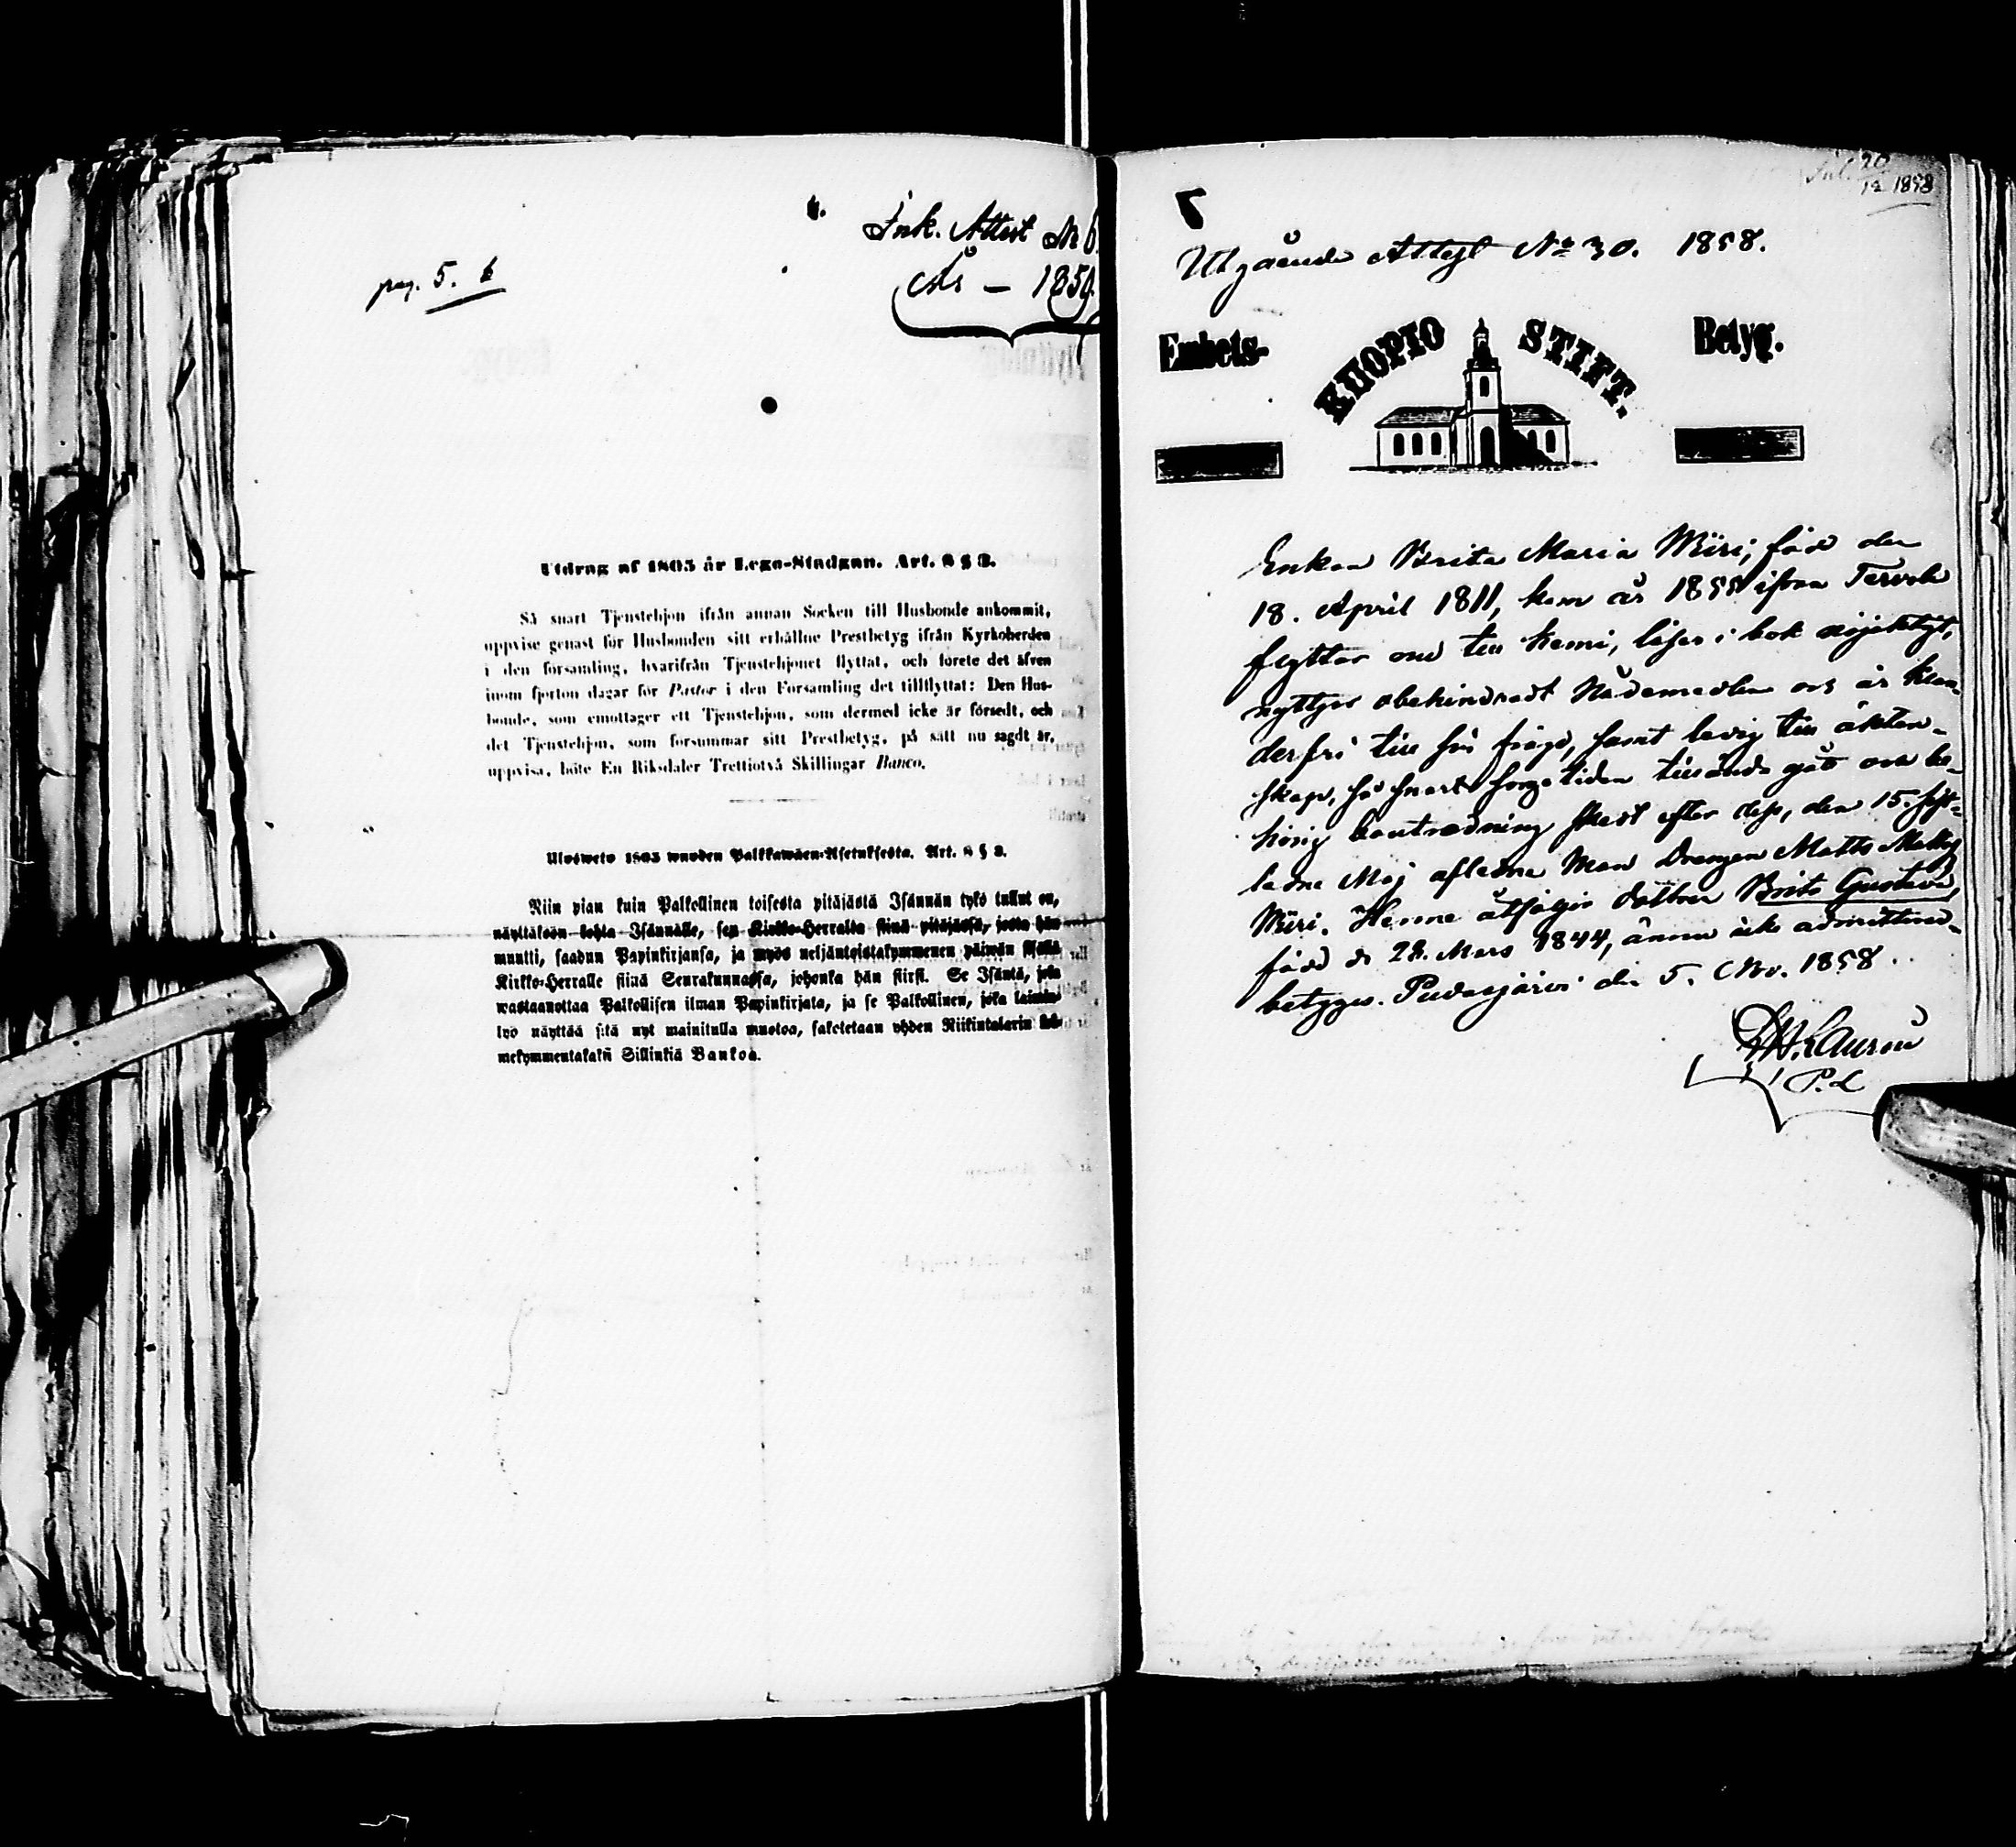 Ink. Attest № 6.
År — 1859.
pag. 5. b
Utdrag af 1805 år Lego-Stadgan. Art. 8 § 3.
Så snart Tjenstehjon ifrån annan Socken till Husbonde ankommit,
uppvise genast för Husbonden sitt erhållne Prestbetyg ifrån Kyrkoherden
i den församling, hvarifrån Tjenstehjonet flyttat, och förete det äfven
inom fjorton dagar för Pastor i den Församling det tillflyttat: Den Hus-
bonde, som emottager ett Tjenstehjon, som dermed icke är försedt, och
det Tjenstehjon, som försummar sitt Prestbetyg, på sätt nu sagdt är,
uppvisa, böte En Riksdaler Trettiotvå Skillingar Banco.
Ulosweto 1805 wuoden Palkkawäen-Asetuksesta. Art. 8 § 3.
Niin pian kuin Palkollinen toisesta pitäjästä Isännän tykö tullut on,
näyttäköön kohta Isännälle, sen Kirkko-Herralta siinä pitäjässä, josta hän
muutti, saadun Papinkirjansa, ja myös neljäntoistakymmenen päiwän sisällä
Kirkko-Herralle siinä Seurakunnassa, johonka hän siirsi. Se Isäntä, joka
wastaanottaa Palkollisen ilman Papinkirjata, ja se Palkollinen, joka laimin-
lyö näyttää sitä nyt mainitulla muotoa, sakotetaan yhden Riikintalarin kol-
mekymmentakaksi Sillinkiä Bankoa.
7
20
12 1858
Utgående Attest № 30. 1858.
Embets- KUOPIO STIFT. Betyg.
Enkan Brita Maria Wiiri, född den
18. April 1811, kom år 1855 ifrån Tervola
flyttar nu till Kemi, läser i bok nöjaktigt,
nyttjar obehindradt Nådemedlen och är klan-
derfri till sin frägd, samt ledig till äkten-
skap, så snart sorgetiden tilländagått och be-
hörig boutredning skedt efter dess, den 15. sist-
ledne Maj aflidne Man Drengen Matts Mattss.
Wiiri. Henne åtföljer dottren Brita Gustava,
född d. 28. Mars 1844, ännu icke admitterad,
betygas. Pudasjärvi den 5. Nov. 1858.
Laurin
P. L.